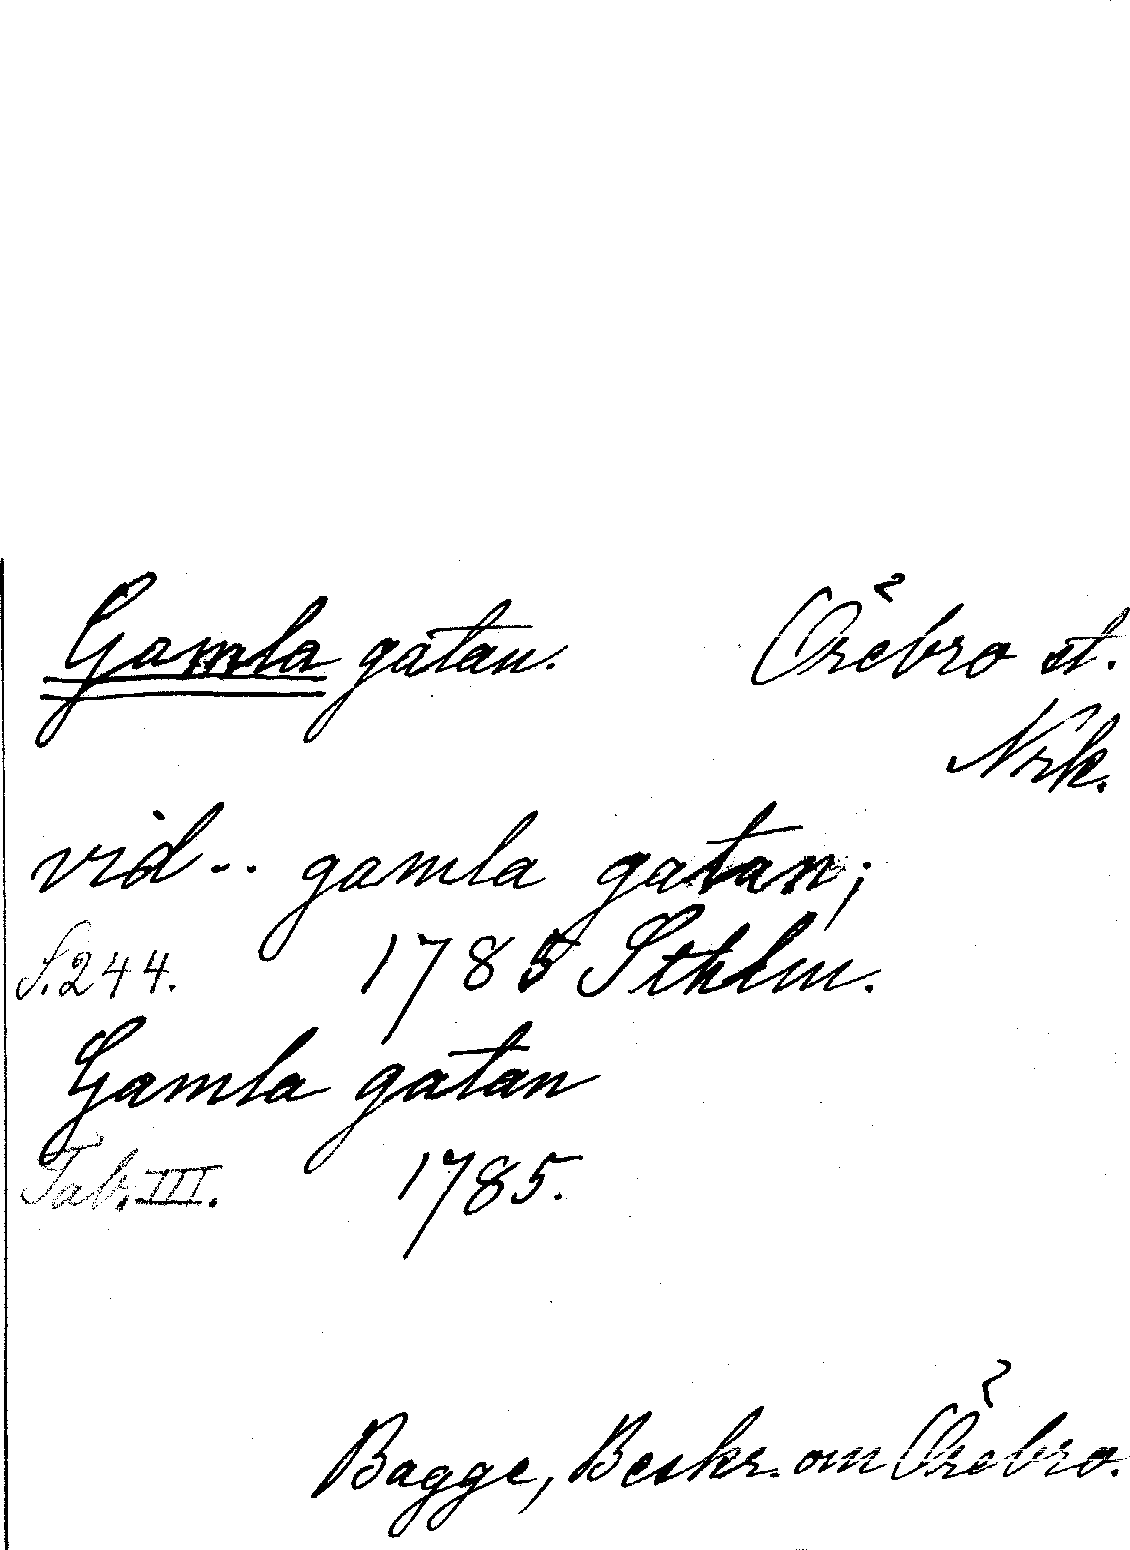 Gamla gatan. Örebro st.
Nrk.
vid .. gamla gatan;
S. 244. 1785 Sthlm.
Gamla gatan
Tab. III. 1785.
Bagge, Beskr. om Örebro.